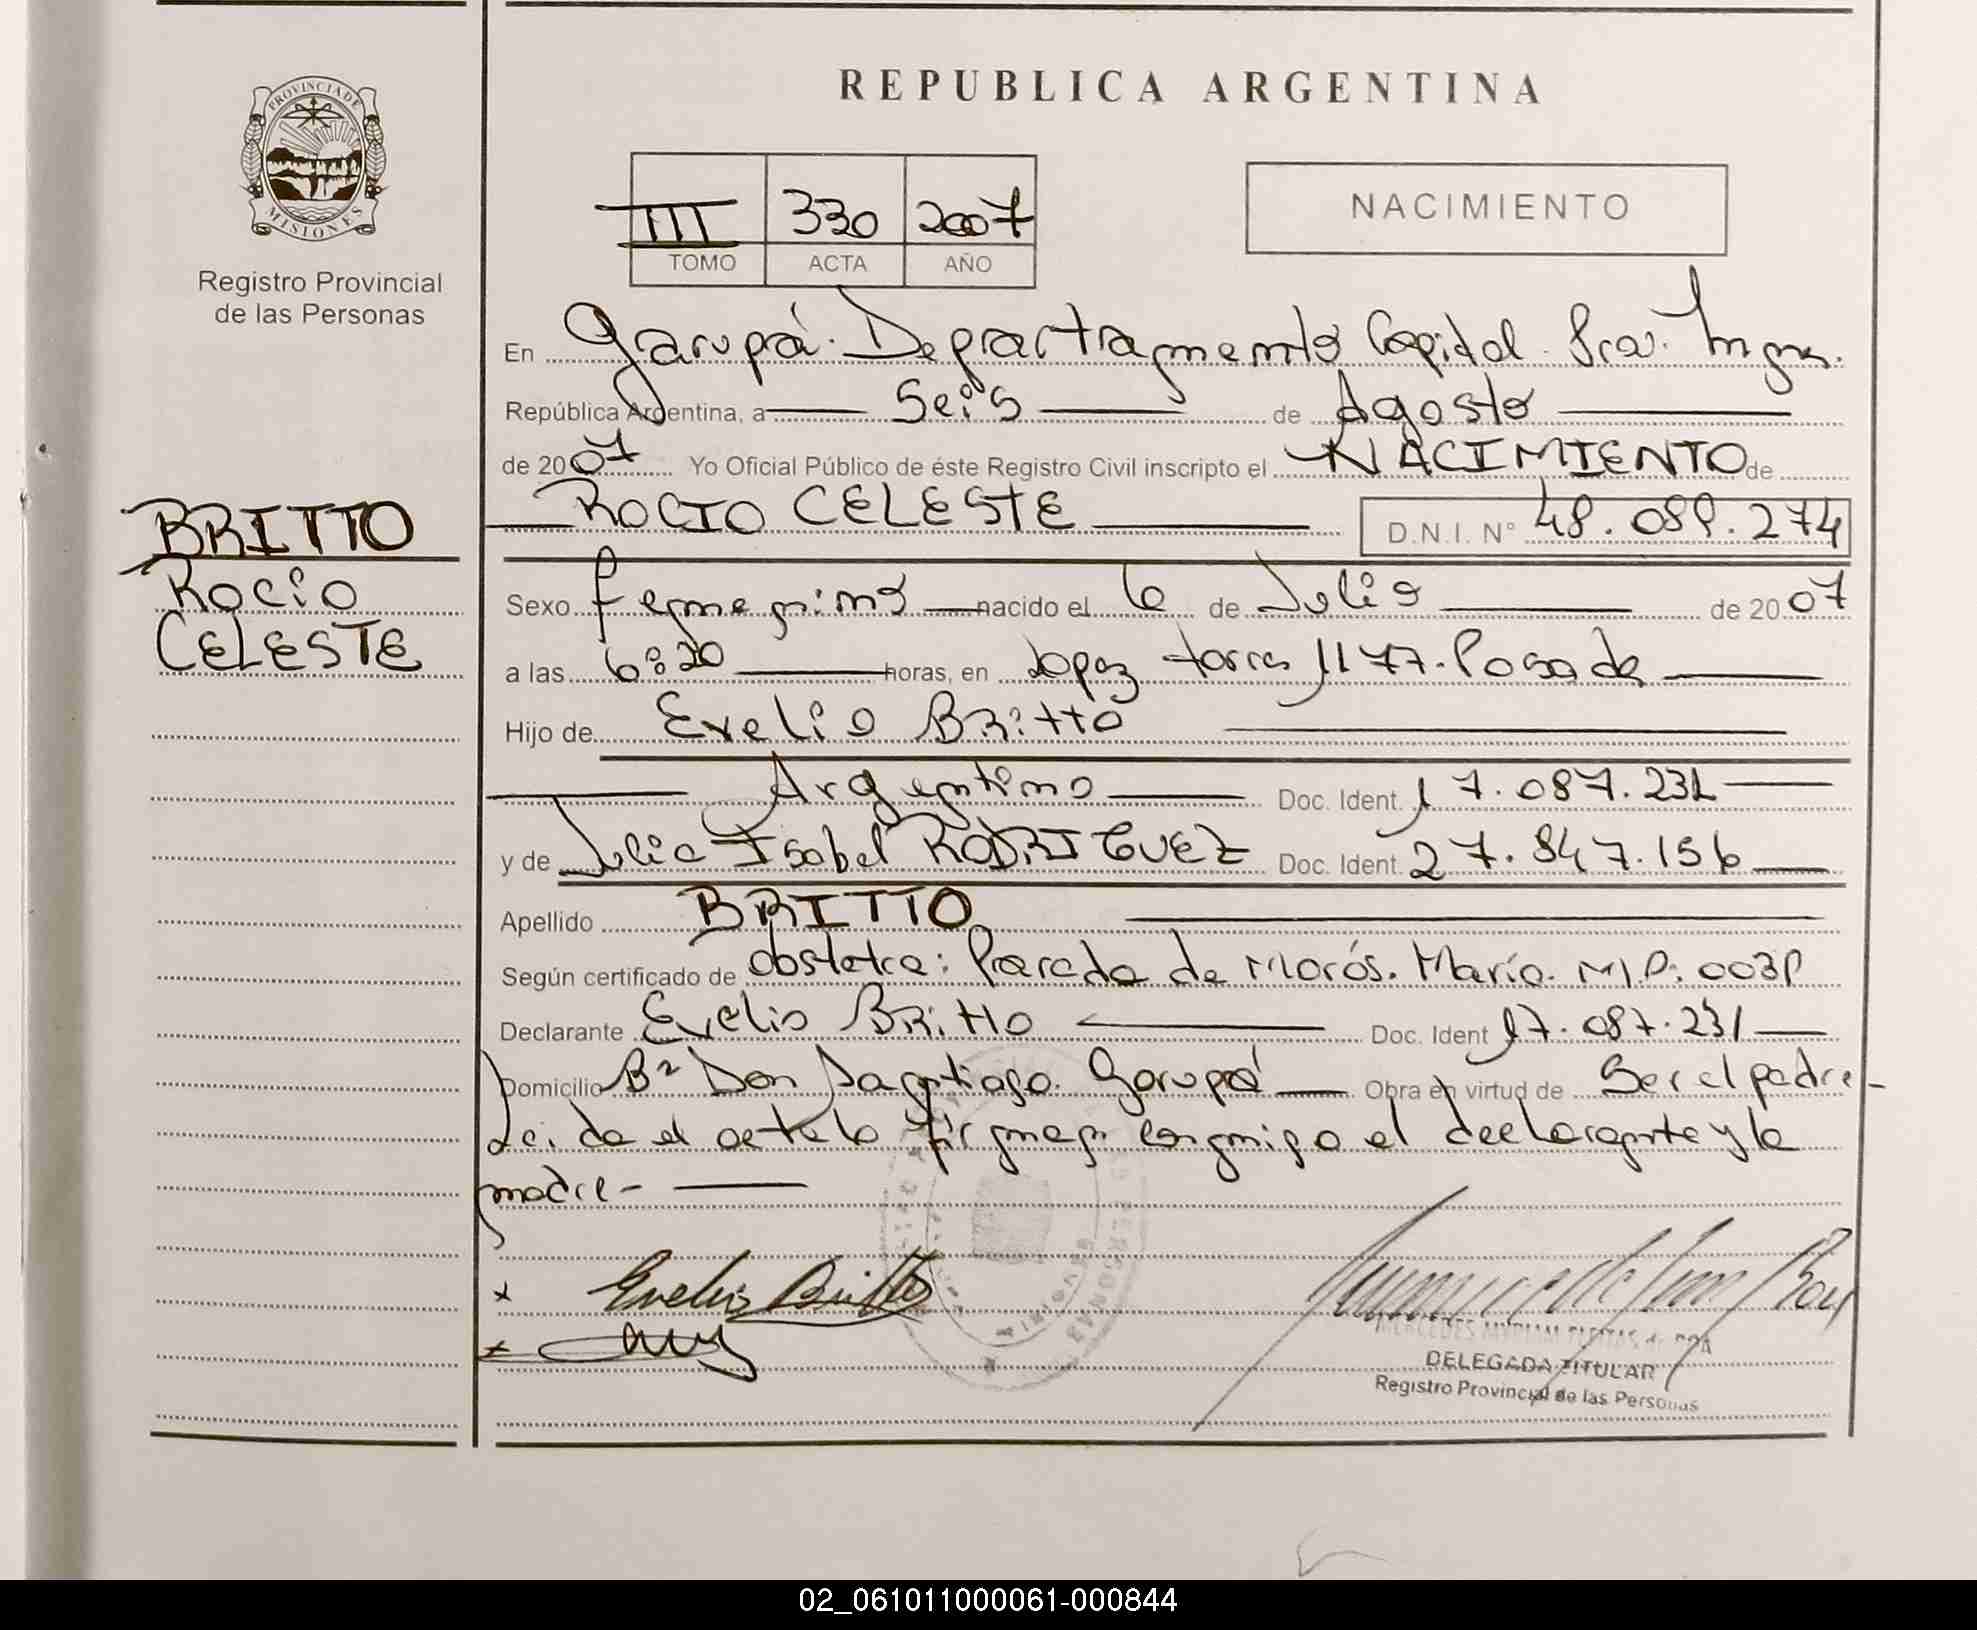 REPUBLICA ARGENTINA
PROVINCIA DE
MISIONES
Registro Provincial
de las Personas
III 330 2007
TOMO ACTA AÑO
NACIMIENTO
En Garupá. Departamento Capital. Pcia. Mnes.
República Argentina, a Seis de Agosto
de 2007 Yo Oficial Público de éste Registro Civil inscripto el NACIMIENTO de
ROCIO CELESTE D.N.I. N° 48.089.274
BRITTO
Rocío
CELESTE
Sexo femenino nacido el 6 de Julio de 2007
a las 6:20 horas, en Lopez torres 1177. Posadas
Hijo de Evelio BRitto
Argentino Doc. Ident. 17.087.231
y de Julia Isabel RODRIGUEZ Doc. Ident. 27.847.156
Apellido BRITTO
Según certificado de obstetra: Parada de Morós. María. M.P.
Declarante Evelio BRitto Doc. Ident 17.087.231
Domicilio B° Don Santiago. Garupá Obra en virtud de Ser el padre-
Leída el acta la firman conmigo el declarante y la
madre-
x Evelio Britto
x
MERCEDES MYRIAM FREITAS de ROA
DELEGADA TITULAR
Registro Provincial de las Personas
02_061011000061-000844